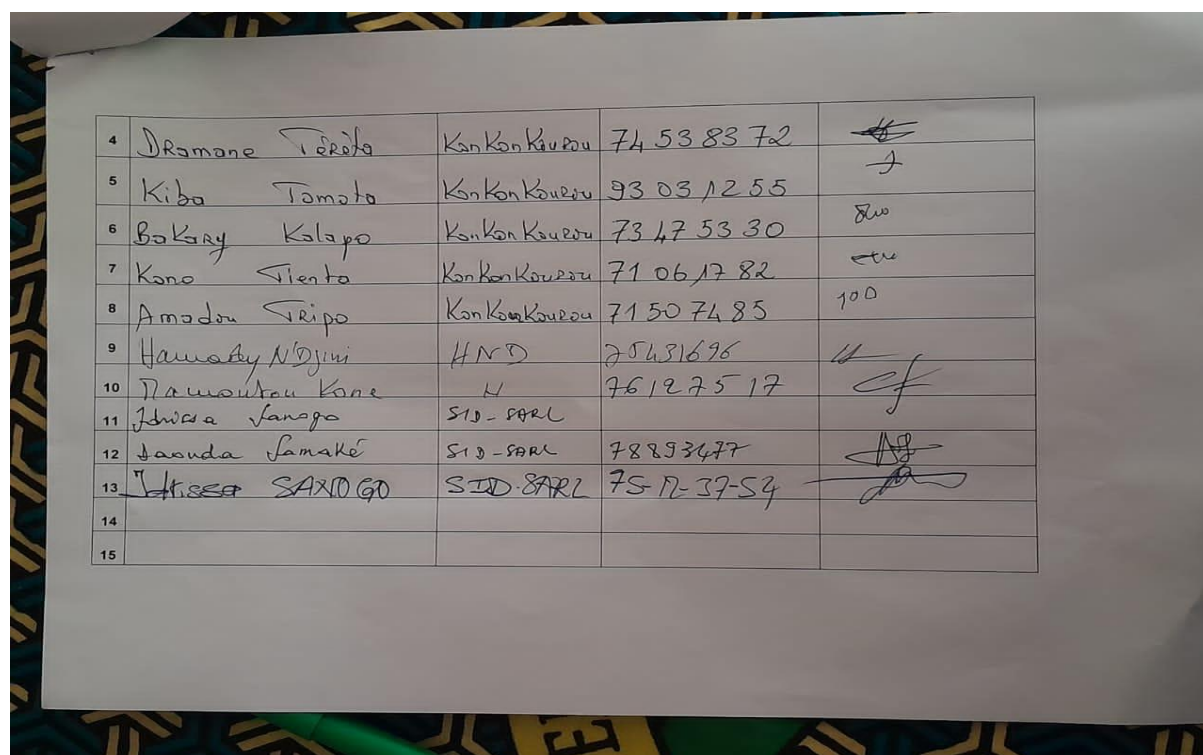 4 Dramane Tèrèta KonKonKourou 74 53 83 72
5 Kiba Tamata KonKonKourou 93 03 12 55
6 BaKary Kalapo KonKonKourou 73 47 53 30
7 Kano Tienta KonKonKourou 71 06 17 82
8 Amadou Tripo KonKonKourou 71 50 74 85 100
9 Hamady N'Djini HND 75431696
10 Mamoutou Kone 76 12 75 17
11 Idrissa Sanogo SID-SARL
12 Daouda Samaké SID-SARL 78893477
13 Idrissa SANOGO SID-SARL 75-12-37-54
14
15